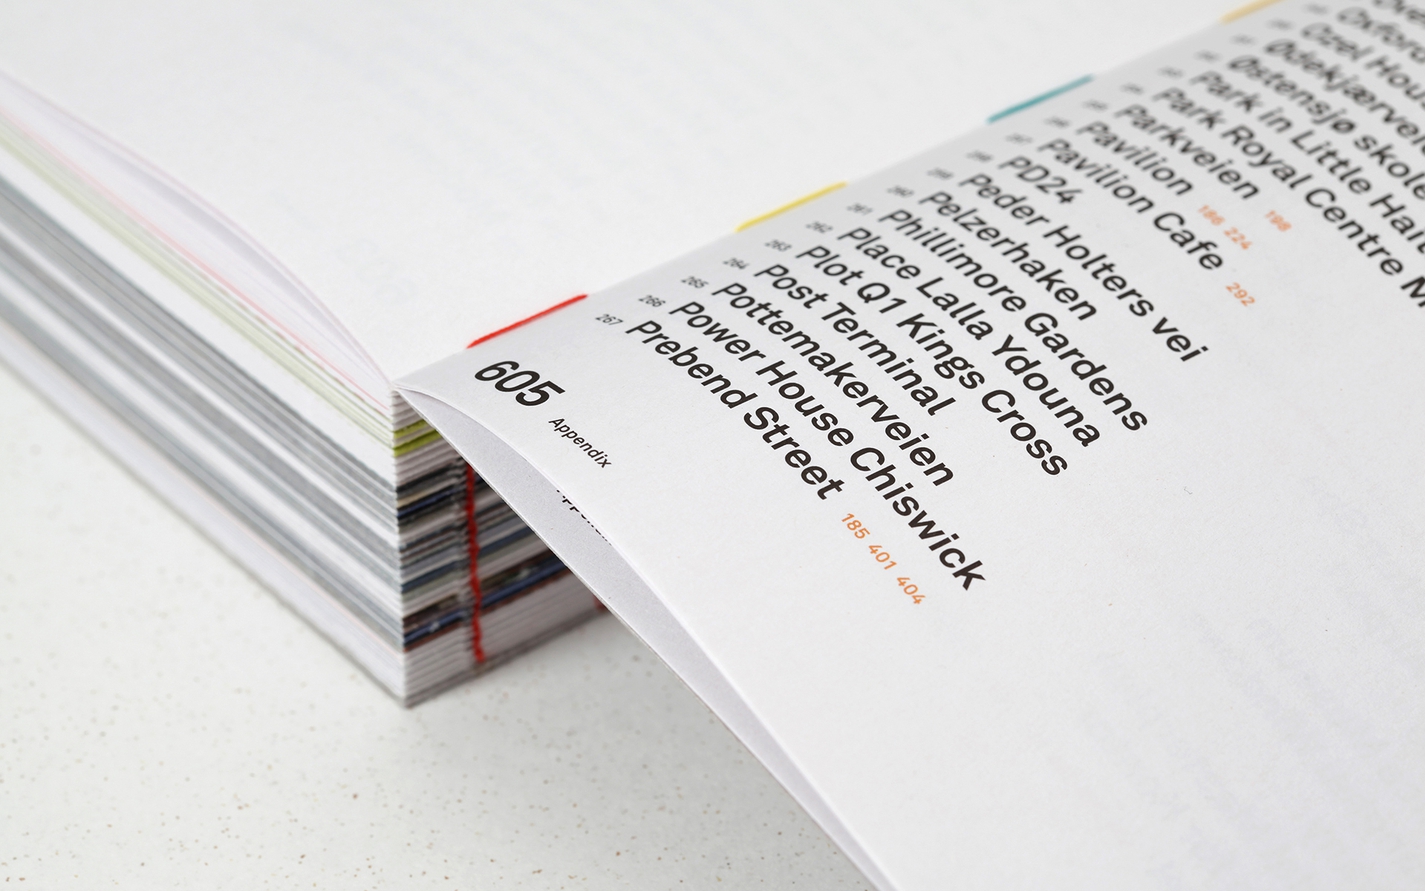 Oxford
Østensjø skole
Park in Little
Park Royal Centre
Parkveien 198
Pavilion 186 224
257 Pavilion Cafe 292
258 PD24
259 Peder Holters vei
260 Pelzerhaken
261 Phillimore Gardens
262 Place Lalla Ydouna
263 Plot Q1 Kings Cross
264 Post Terminal
265 Pottemakerveien
266 Power House Chiswick
267 Prebend Street 185 401 404
605 Appendix